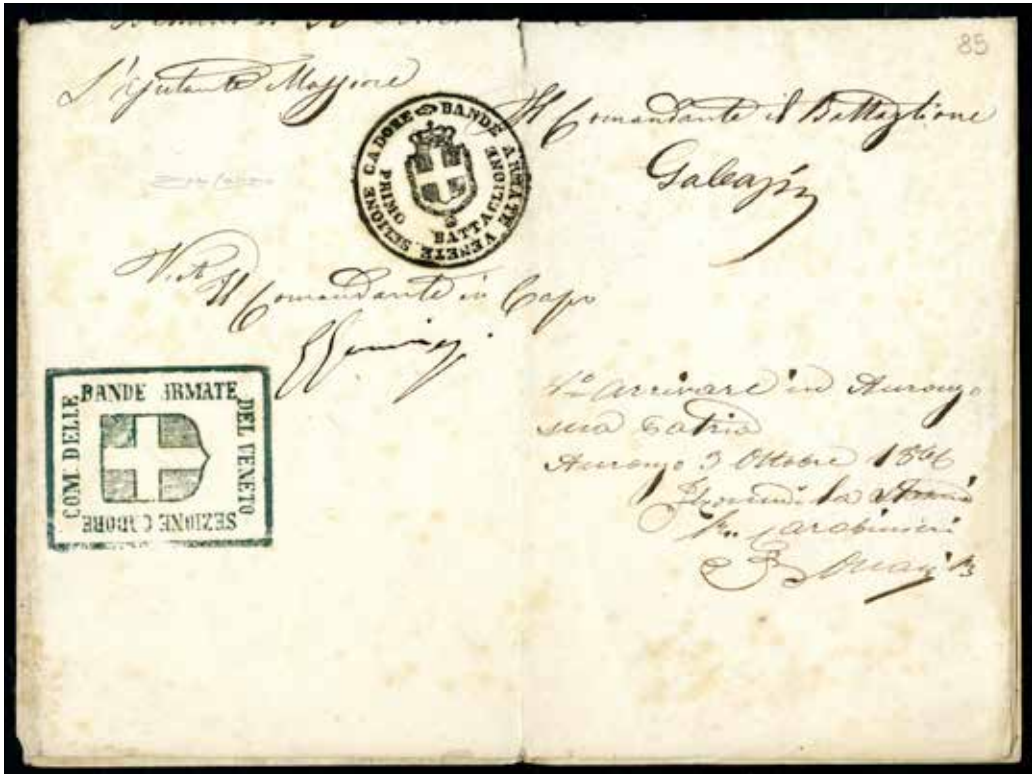 85
L'Ajutante Maggiore
Il Comandante il Battaglione
BANDE ARMATE VENETE SEZIONE CADORE
PRIMO BATTAGLIONE
Visto Il Comandante in Capo
COM. DELLE
BANDE ARMATE
DEL VENETO
SEZIONE CADORE
Vo arrivare in Auronzo
sua Patria
Auronzo 3 Ottobre 1866
la
Carabinieri